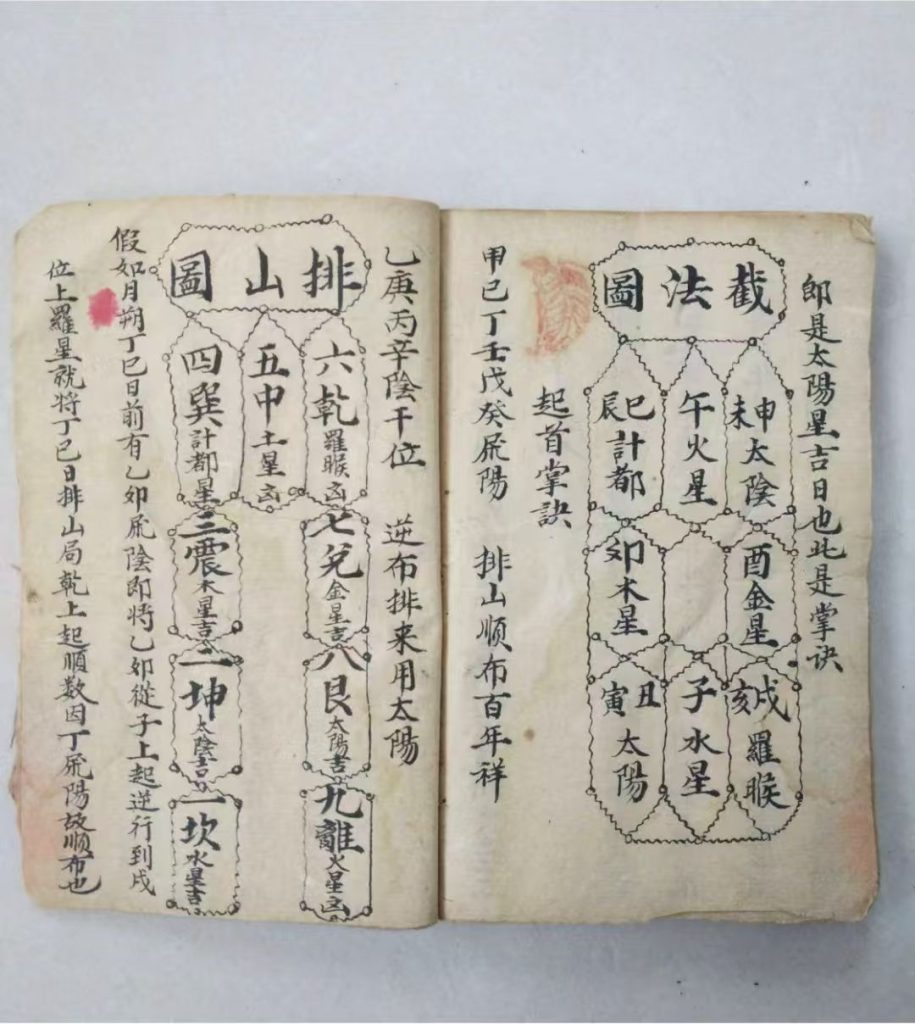 即是太陽星吉日也此是掌訣
截法圖
申未太陰
酉金星
戌亥羅睺
午火星
子水星
巳辰計都
卯木星
丑寅太陽
起首掌訣
甲己丁壬戊癸屬陽 排山順布百年祥
乙庚丙辛陰干位 逆布排来用太陽
排山圖
六乾羅睺凶
七兌金星吉
八艮太陽吉
九離火星凶
五中土星凶
四巽計都星
三震木星吉
二坤太陰吉
一坎水星吉
假如月朔丁巳日前有乙卯屬陰即將乙卯從子上起逆行到戌
位上羅星就将丁巳日排山局乾上起順数因丁屬陽故順布也